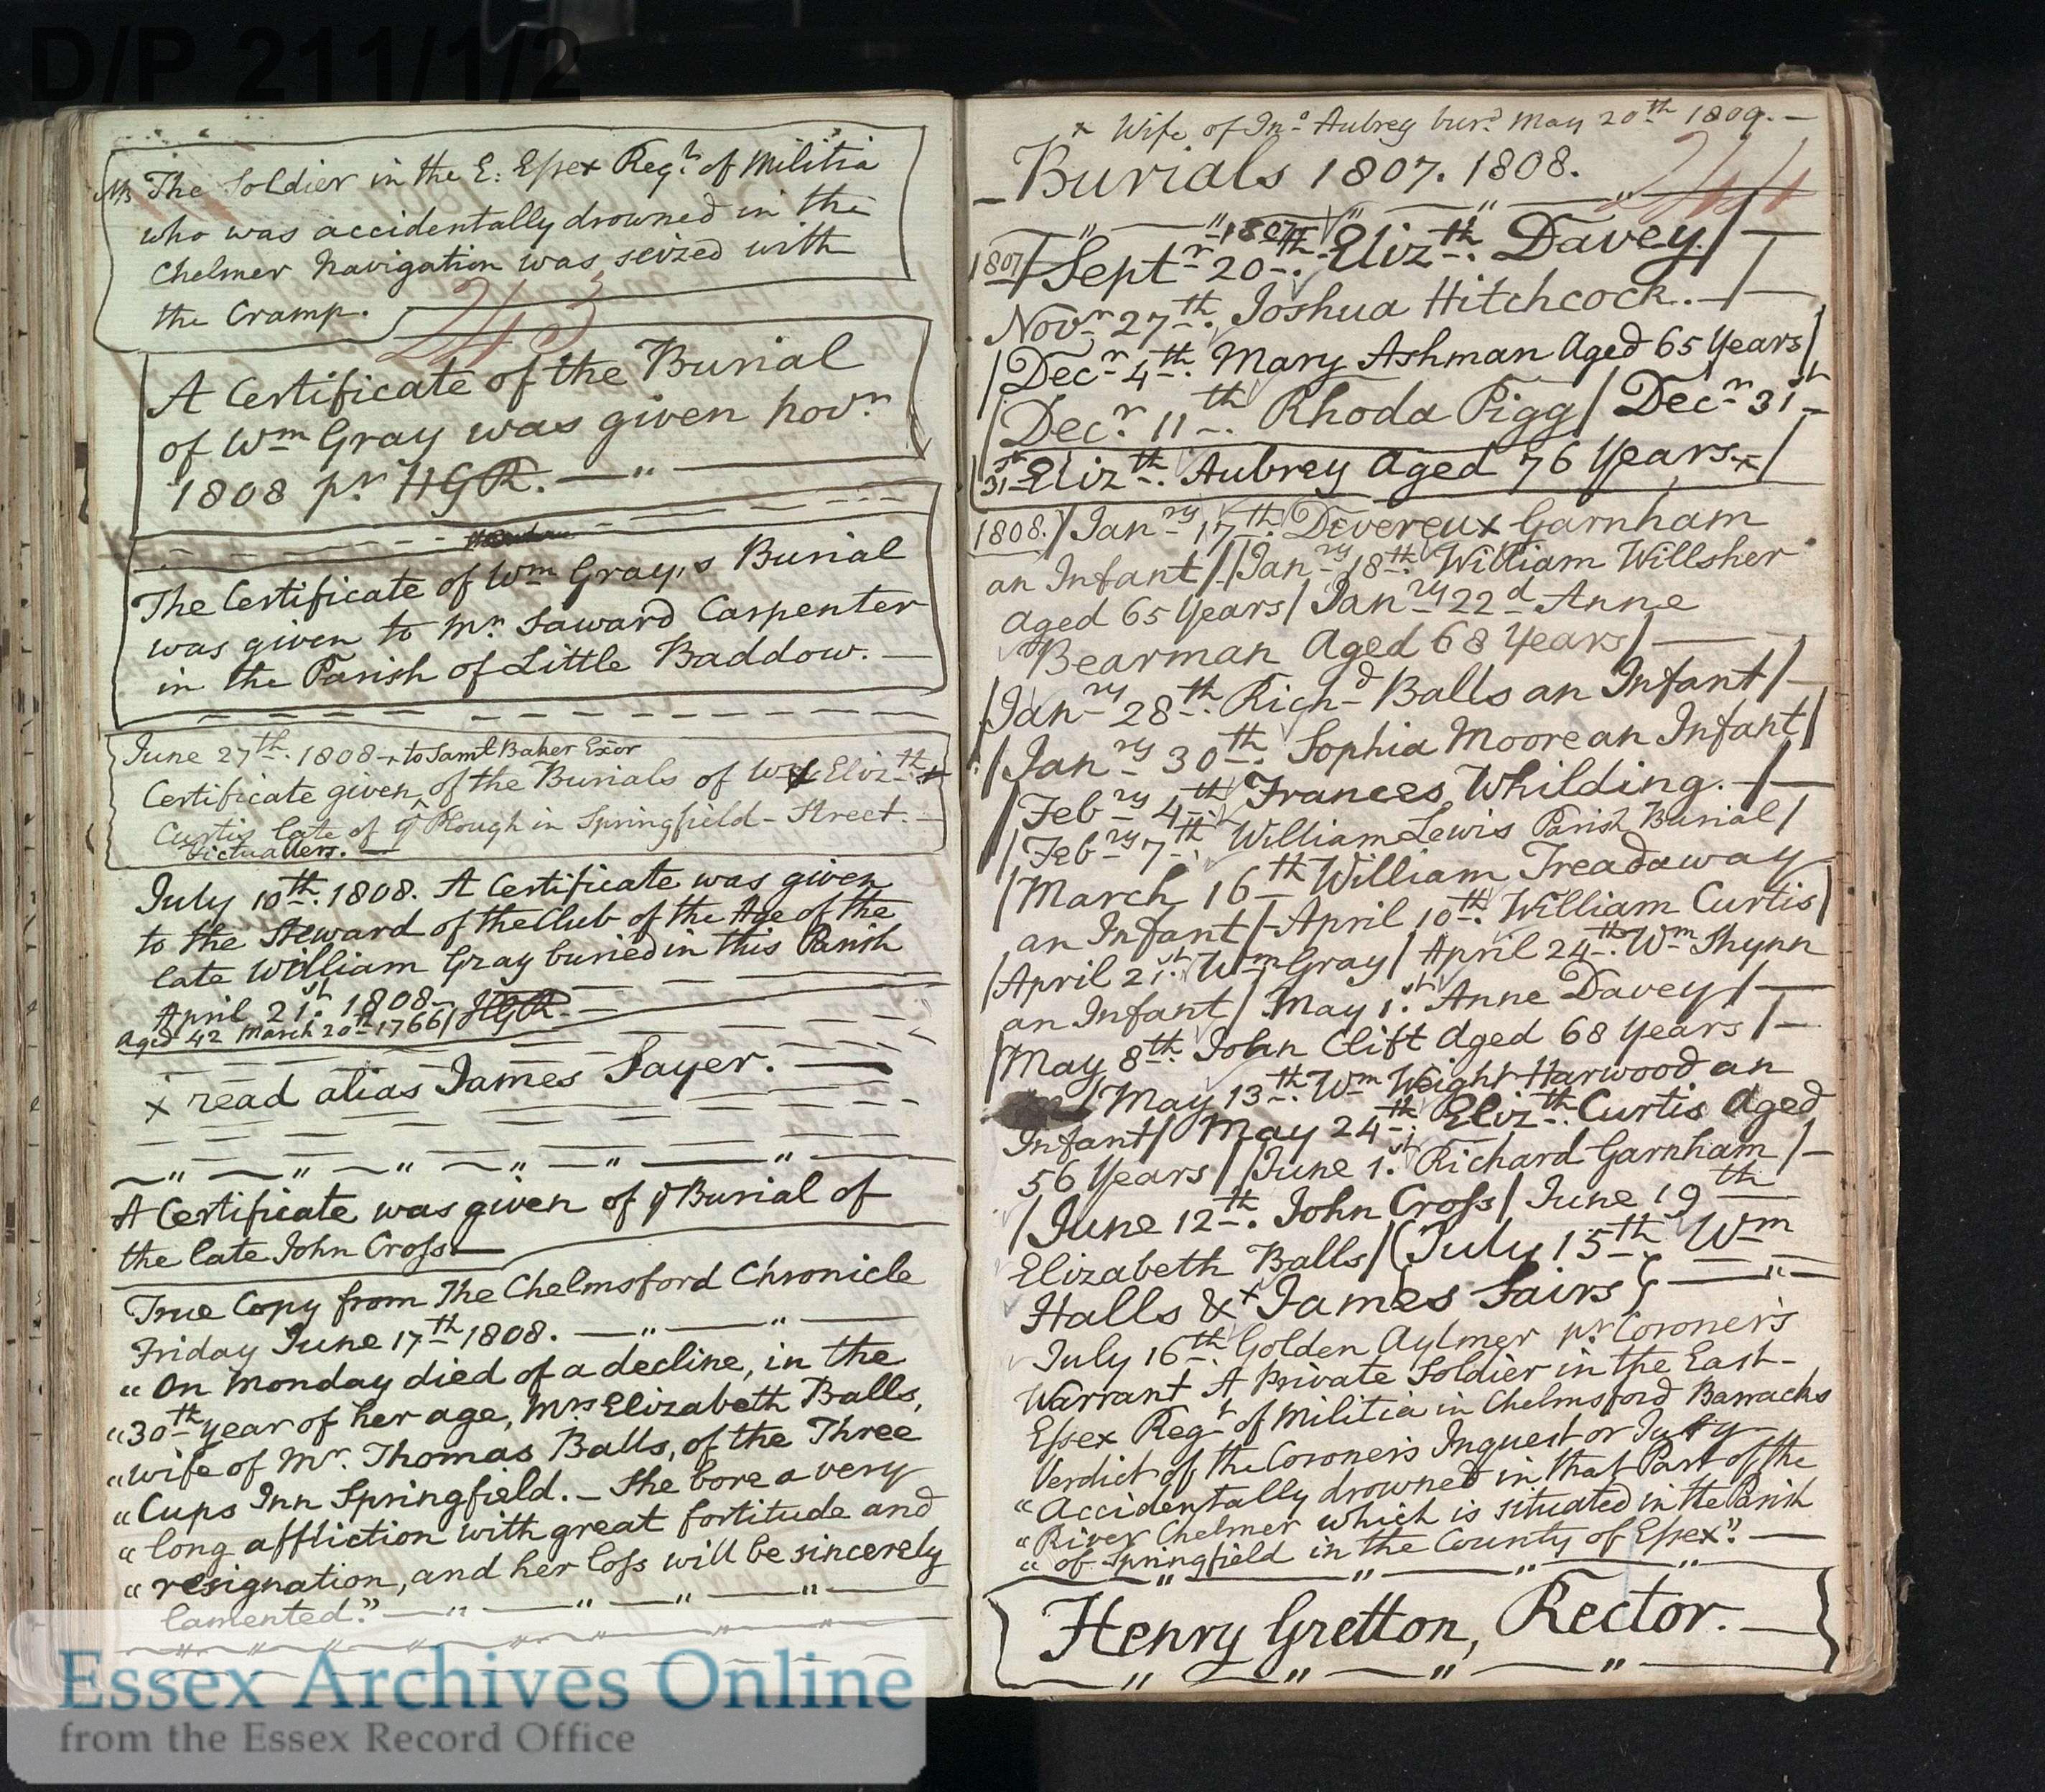 D/P 211/1/2
NB The Soldier in the E: Essex Regt. of Militia
who was accidentally drowned in the
Chelmer Navigation was seized with
the Cramp.
243
A Certificate of the Burial
of Wm Gray was given Novr.
1808 pr HGR.
The Certificate of Wm Gray,s Burial
was given to Mr. Saward Carpenter
in the Parish of Little Baddow.
June 27th. 1808 - to Saml Baker Exor
Certificate given ^ of the Burials of Wm & Elizth.
Curtis late of ye Plough in Springfield - Street.
Victuallers.
July 10th. 1808. A Certificate was given
to the Steward of the Club of the Age of the
late William Gray buried in this Parish
April 21st. 1808 - HGR.
Aged 42 March 20th 1766/
x read alias James Sayer.
A Certificate was given of ye Burial of
the late John Cross.
True Copy from The Chelmsford Chronicle
Friday June 17th 1808.
"On Monday died of a decline, in the
"30th year of her age, Mrs Elizabeth Balls,
"wife of Mr. Thomas Balls, of the Three
"Cups Inn Springfield. - She bore a very
"long affliction with great fortitude and
"resignation, and her loss will be sincerely
lamented."
x Wife of Jno. Aubrey burd. May 20th 1809.
Burials 1807. 1808.
244
1807
1807/ Septr 20th. Elizth. Davey/
Novr 27th. Joshua Hitchcock.
/Decr 4th. Mary Ashman Aged 65 Years/
/Decr. 11th. Rhoda Pigg/ Decr 31st
31st Elizth. Aubrey Aged 76 Years. x/
1808./ Janry 17th. Devereux Garnham
an Infant// Janry 18th. William Willsher
Aged 65 Years/ Janry 22d Anne
Bearman Aged 68 Years/
/Janry 28th. Richd Balls an Infant/
/Janry 30th. Sophia Moore an Infant/
/Febry 4th Frances Whilding.
/Febry 7th William Lewis Parish Burial/
/March 16th William Treadaway
an Infant/ April 10th. William Curtis/
/April 21st. Wm Gray/ April 24th. Wm Shynn
an Infant/ May 1st. Anne Davey/
/May 8th. John Clift Aged 68 Years/
/May 13th. Wm Weight Harwood an
Infant/ May 24th. Elizth. Curtis Aged
56 Years/ /June 1st. Richard Garnham/
/June 12th. John Cross/ June 19th
Elizabeth Balls/ (July 15th. Wm
Halls & x James Sairs}
July 16th. Golden Aylmer pr Coroner's
Warrant A Private Soldier in the East-
Essex Regt of Militia in Chelmsford Barracks
Verdict of the Coroner's Inquest or Jury
"Accidentally drowned in that Part of the
"River Chelmer which is situated in the Parish
"of Springfield in the County of Essex".
Henry Gretton, Rector.
Essex Archives Online
from the Essex Record Office